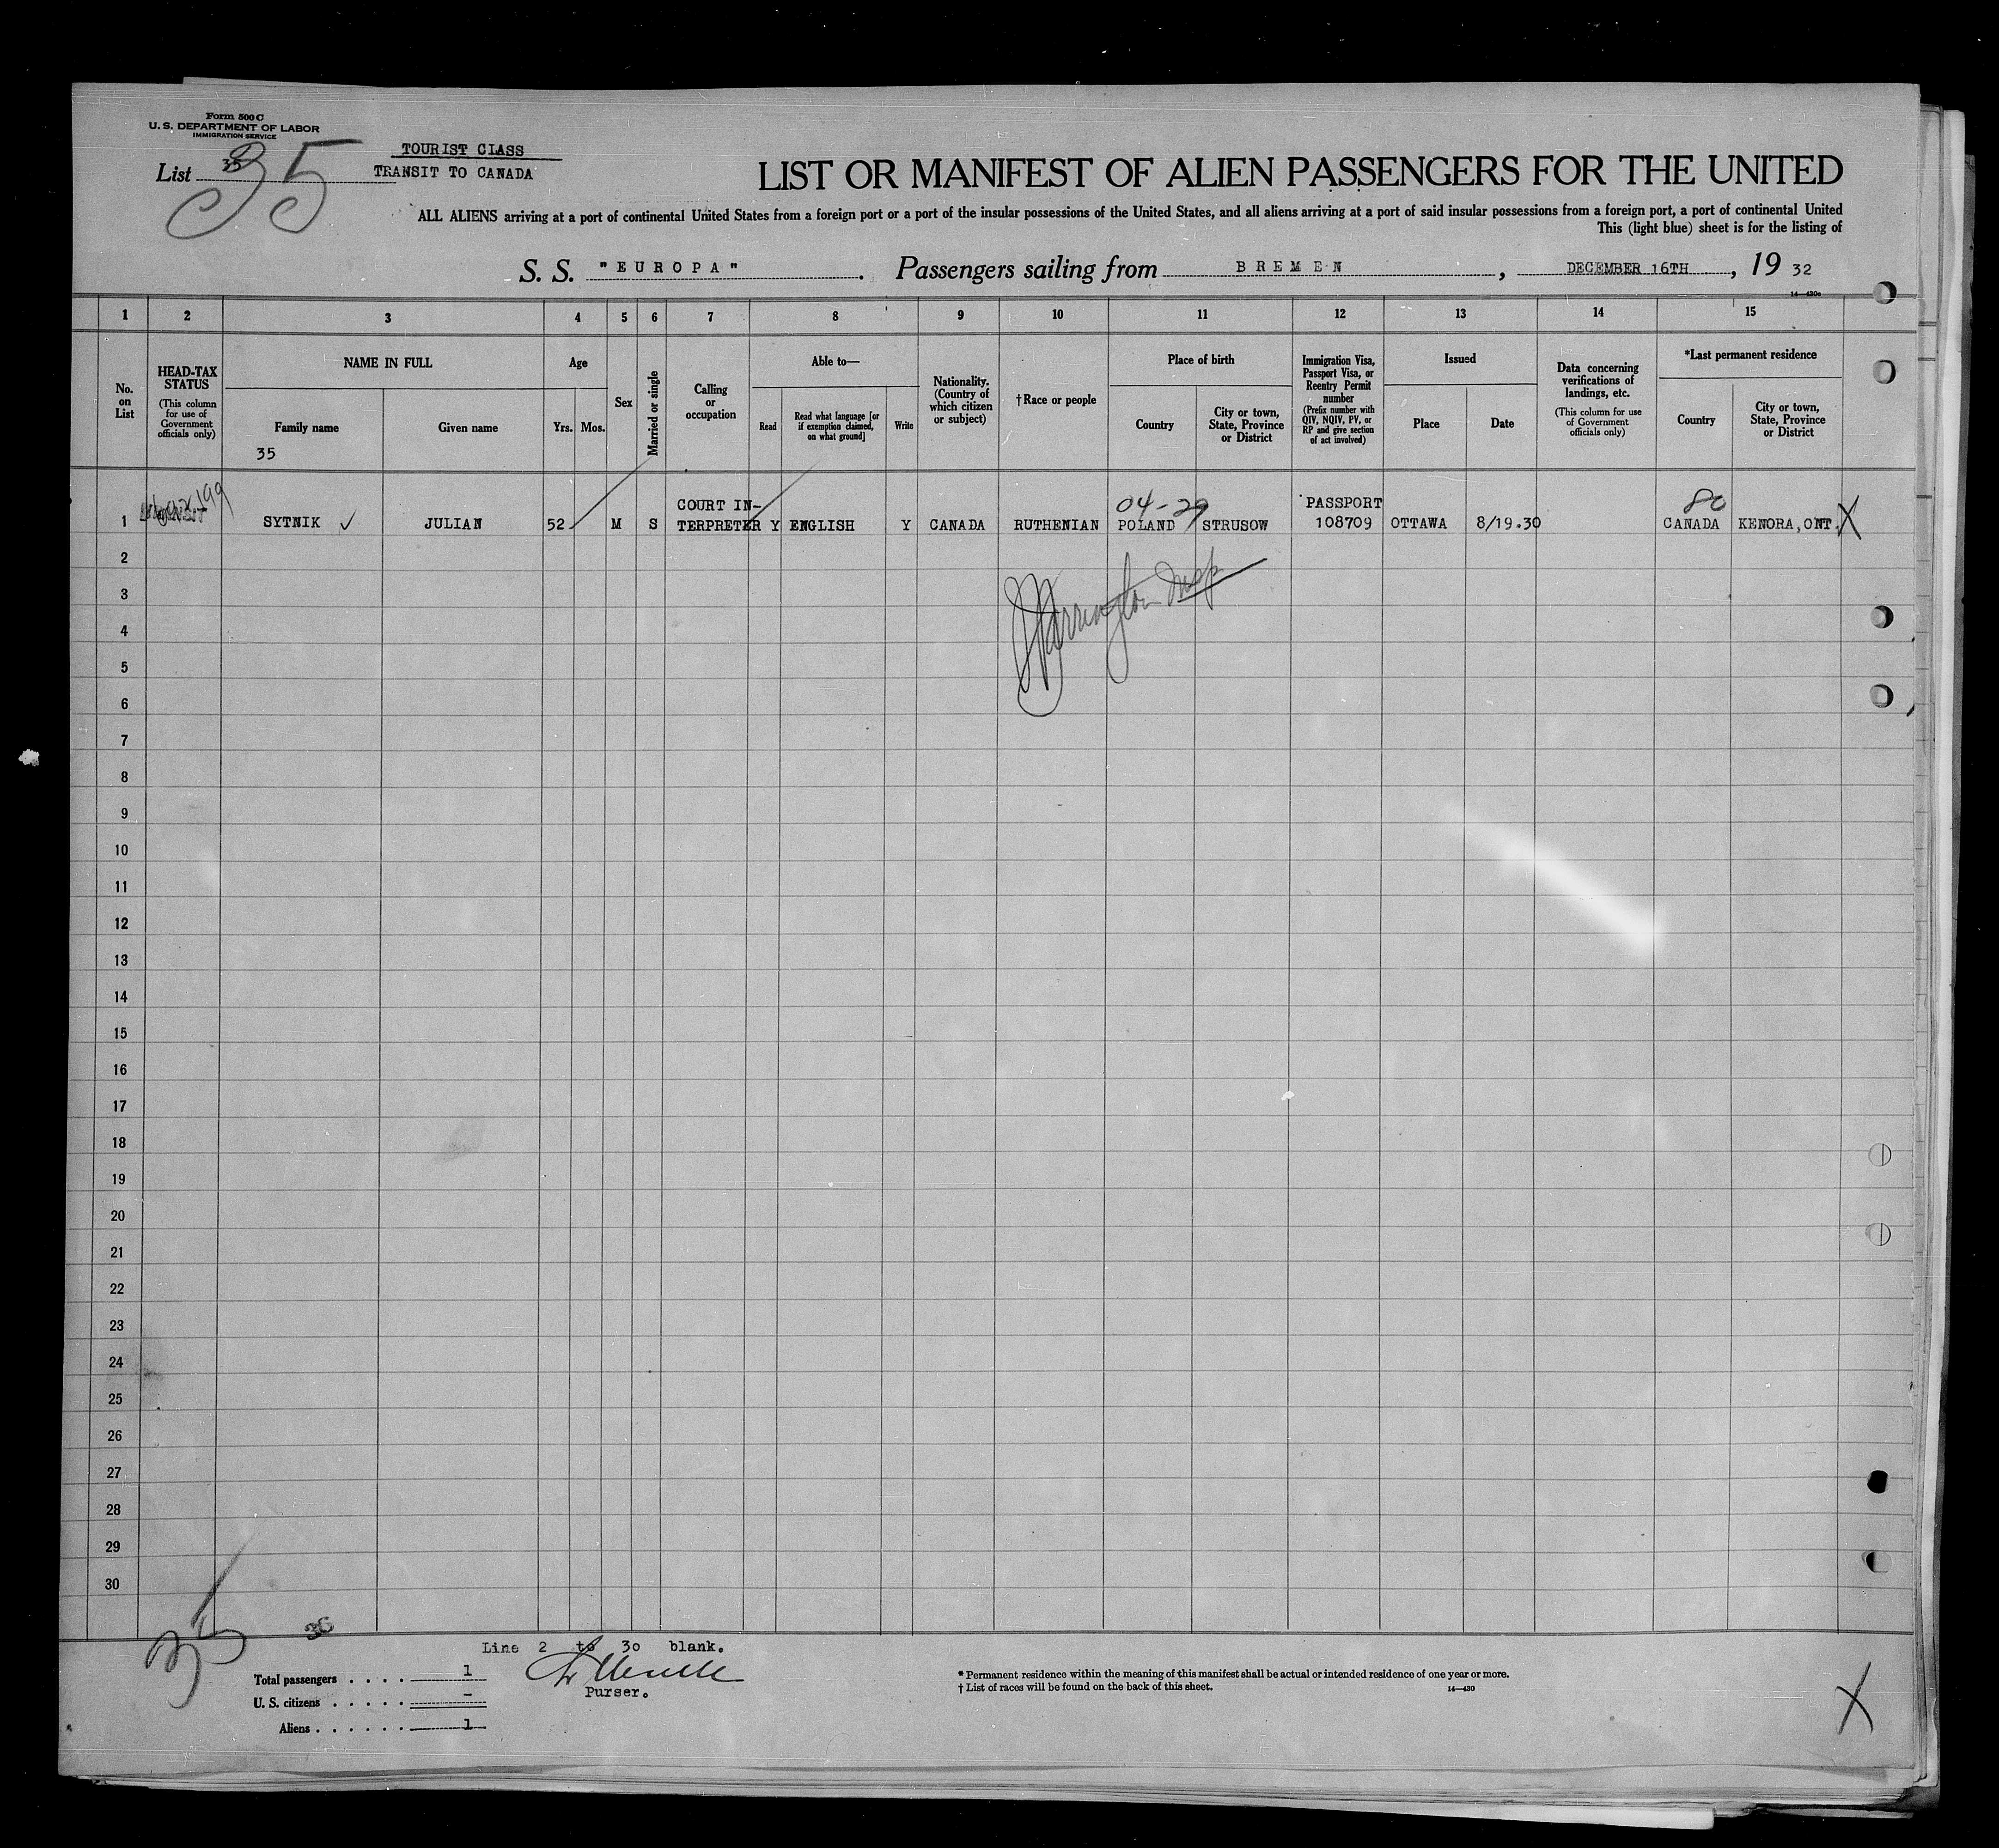 Form 500 C
U. S. DEPARTMENT OF LABOR
IMMIGRATION SERVICE
List 35
35
TOURIST CLASS
TRANSIT TO CANADA
LIST OR MANIFEST OF ALIEN PASSENGERS FOR THE UNITED
ALL ALIENS arriving at a port of continental United States from a foreign port or a port of the insular possessions of the United States, and all aliens arriving at a port of said insular possessions from a foreign port, a port of continental United
This (light blue) sheet is for the listing of
S. S. "EUROPA". Passengers sailing from BREMEN, DECEMBER 16TH, 19 32
14—430c
1 2 3 4 5 6 7 8 9 10 11 12 13 14 15
No. on List
HEAD-TAX STATUS
(This column for use of Government officials only)
NAME IN FULL
Family name
Given name
35
Age
Yrs. Mos.
Sex
Married or single
Calling or occupation
Able to—
Read
Read what language [or if exemption claimed, on what ground]
Write
Nationality. (Country of which citizen or subject)
† Race or people
Place of birth
Country
City or town, State, Province or District
Immigration Visa, Passport Visa, or Reentry Permit number
(Prefix number with QIV, NQIV, PV, or RP and give section of act involved)
Issued
Place
Date
Data concerning verifications of landings, etc.
(This column for use of Government officials only)
*Last permanent residence
Country
City or town, State, Province or District
COURT IN- 04-29 PASSPORT 80
1 SYTNIK ✓ JULIAN 52 M S TERPRETER Y ENGLISH Y CANADA RUTHENIAN POLAND STRUSOW 108709 OTTAWA 8/19.30 CANADA KENORA, ONT. X
2
3
4
5
6
7
8
9
10
11
12
13
14
15
16
17
18
19
20
21
22
23
24
25
26
27
28
29
30
35
36
Line 2 to 30 blank.
Purser.
Total passengers . . . . 1
U. S. citizens . . . . . –
Aliens . . . . . . 1
* Permanent residence within the meaning of this manifest shall be actual or intended residence of one year or more.
† List of races will be found on the back of this sheet.
14—430
X